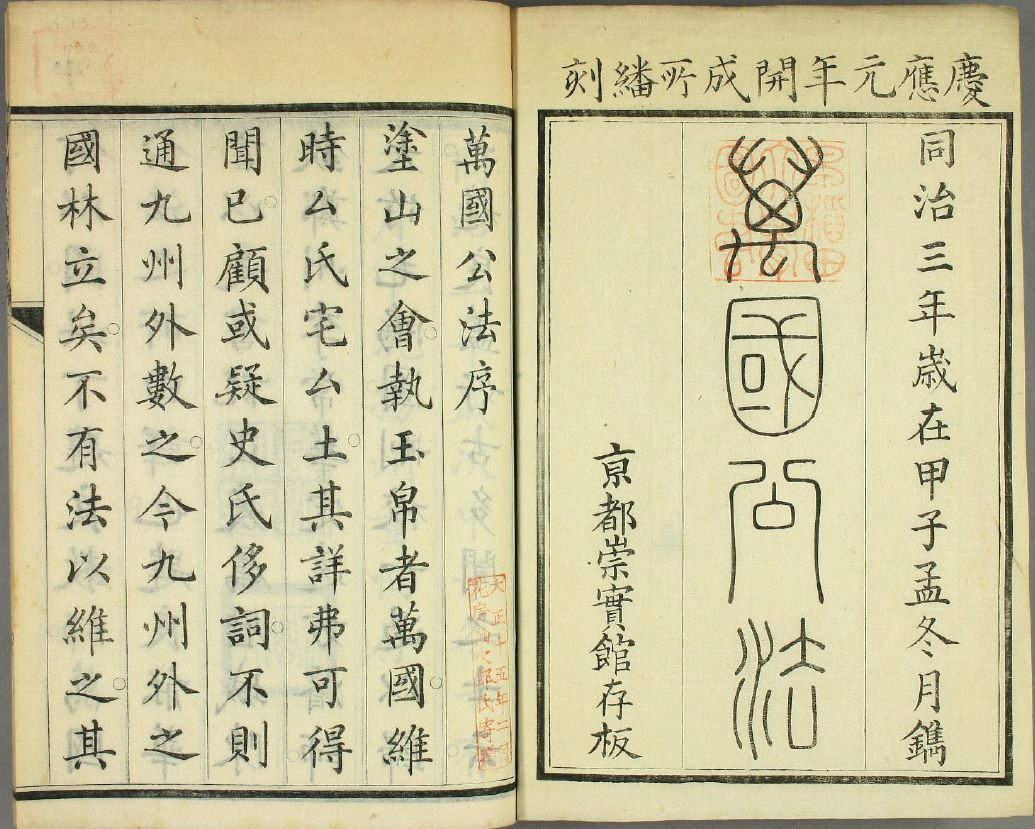 慶應元年開成所繙刻
同治三年歲在甲子孟冬月鐫
萬國公法
京都崇實館存板
萬國公法序
塗山之會。執玉帛者萬國。維
時厶氏宅厶土。其詳弗可得
聞已。顧或疑史氏侈詞。不則
通九州外數之。今九州外之
國林立矣。不有法以維之。其
大正十五年二月